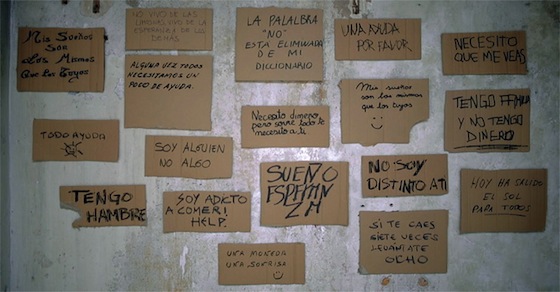 Mis Sueños
Son
Las Mismos
Que Los Tuyos
NO VIVO DE LAS
LIMOSNAS VIVO DE LA
ESPERANZA DE LOS
DEMAS
ALGUNA VEZ TODOS
NECESITAMOS UN
POCO DE AYUDA.
LA PALALBRA
"NO"
ESTA ELIMINADA
DE MI
DICCIONARIO
UNA AYUDA
POR FAVOR
NECESITO
QUE ME VEAS
TODO AYUDA
SOY ALGUIEN
NO ALGO
Necesito dinero,
pero sobre todo te
necesito a ti
Mis sueños
son los mismos
que los tuyos
TENGO FAMILIA
Y NO TENGO
DINERO
TENGO
HAMBRE
SOY ADICTO
A COMER!
HELP.
SUEÑO
ESPERAN
ZA
NO SOY
DISTINTO A TI
HOY HA SALIDO
EL SOL
PARA TODOS
UNA MONEDA
UNA SONRISA
SI TE CAES
SIETE VECES
LEVANTATE
OCHO